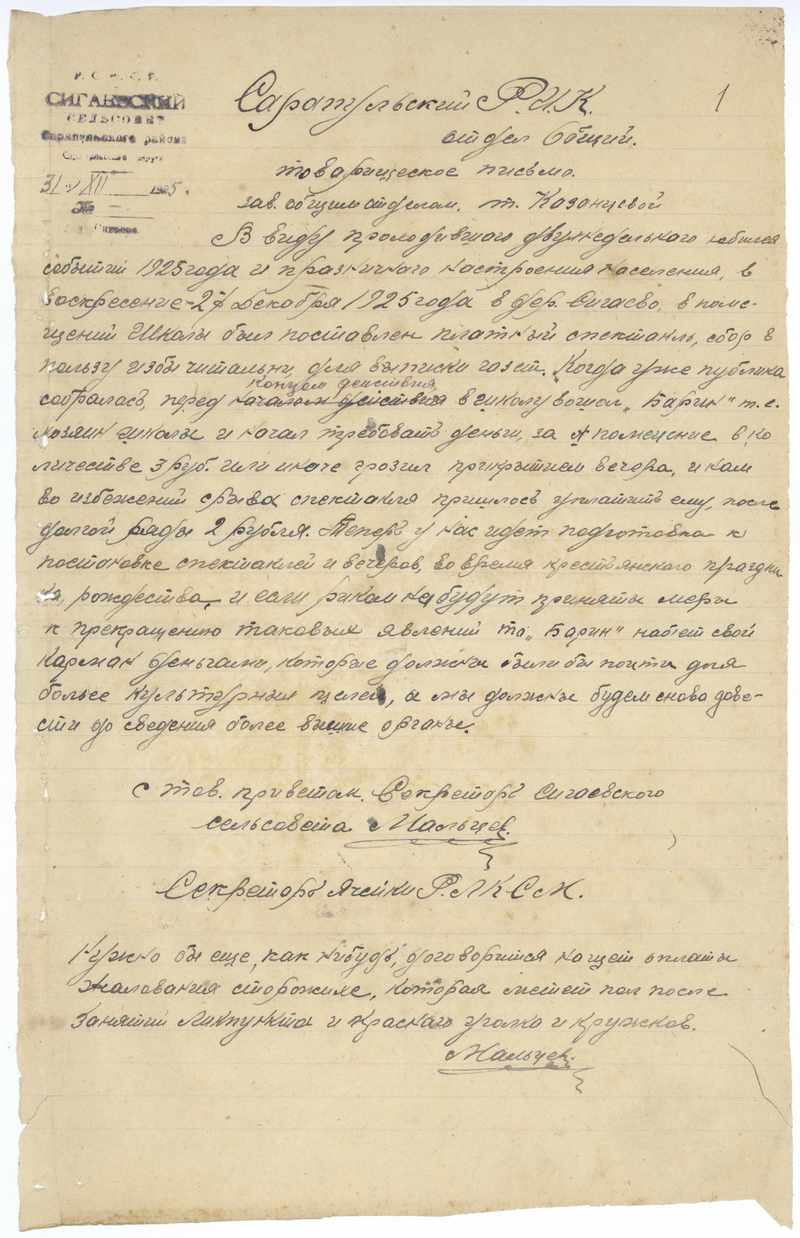 Р. С. Ф. С. Р.
СИГАЕВСКИЙ
СЕЛЬСОВЕТ
Сарапульского района
31/XII 1925 г.
№ —
с. Сигаево
1
Сарапульский Р.И.К.
отдел Общий.
товарищеское письмо.
зав. общим отделом. т. Казанцевой
В виду проходившего двухнедельного юбилея
событий 1925 года и празничного настроения населения, в
воскресение - 27 Декабря 1925 года в дер. Сигаево, в поме-
щений Школы был поставлен платный спектакль, сбор в
пользу избы читальни, для выписки газет. Когда уже публика
концем действия
собралась, перед началом действия в школу вошол „Барин" т.е.
хозяин школы и начал требовать деньги, за помещение в ко
личестве 3 руб. или иначе грозил прикрытием вечера, и нам
во избежений срыва спектакля пришлось уплатить ему, после
долгой ряды 2 рубля. Теперь у нас идет подготовка к
постановке спектаклей и вечеров, во время крестьянского праздни
ка, рождества, и если риком не будут приняты меры
к прекращению таковых явлений то „Барин" набьет свой
карман деньгами, которые должны были бы пойти для
более культурных целей, а мы должны будем снова дове-
сти до сведения более высшие органы.
с тов. приветом. Секретарь Сигаевского
сельсовета Мальцев.
Секретарь ячейки Р.Л.К.С.М.
Нужно бы еще, как нибудь, договорится насчет оплаты
жалования сторожихе, которая метет пол после
занятий Ликпункта и красного уголка и кружков.
Мальцев.